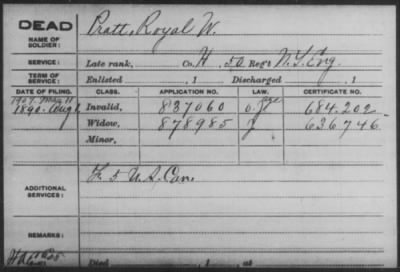 DEAD
NAME OF SOLDIER: Pratt, Royal W.
SERVICE: Late rank, Co. H, 50 Reg't N.Y. Eng.
TERM OF SERVICE: Enlisted , 1 Discharged , 1
DATE OF FILING. CLASS. APPLICATION NO. LAW. CERTIFICATE NO.
1907. 11
1890. Aug 2 Invalid, 837060 684.202
Widow, 878985 636746
Minor,
ADDITIONAL SERVICES: F 5 U.S. Cav.
REMARKS:
Died , 1 , at